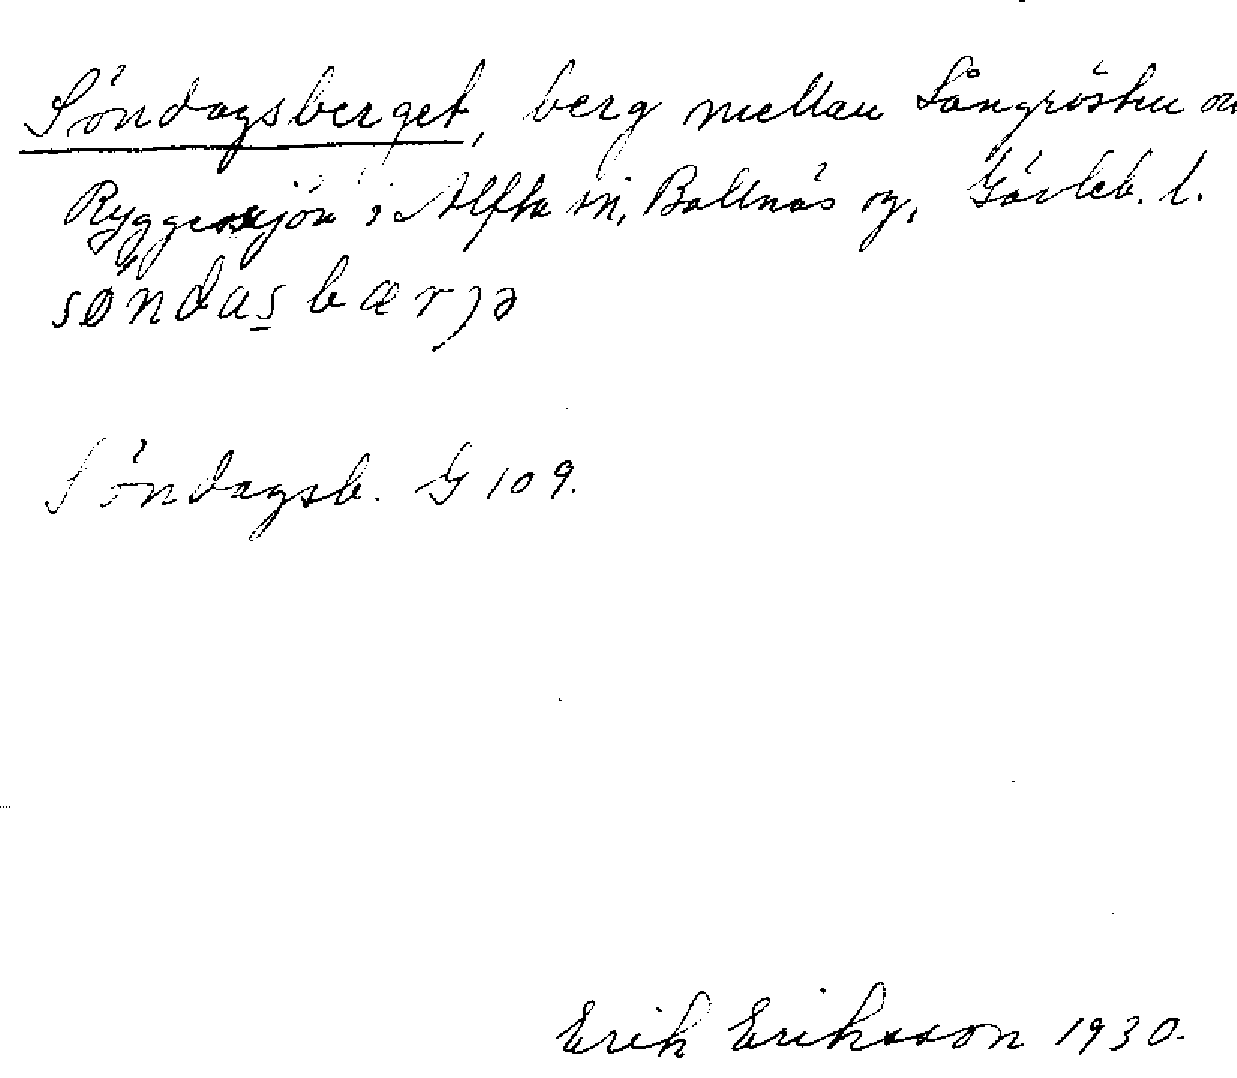 Söndagsberget, berg mellan Långrösten o
Ryggesjön i Alfta sn, Bollnäs og, Gävleb. l.
søndasbærjə
Söndagsb. G 109.
Erik Eriksson 1930.